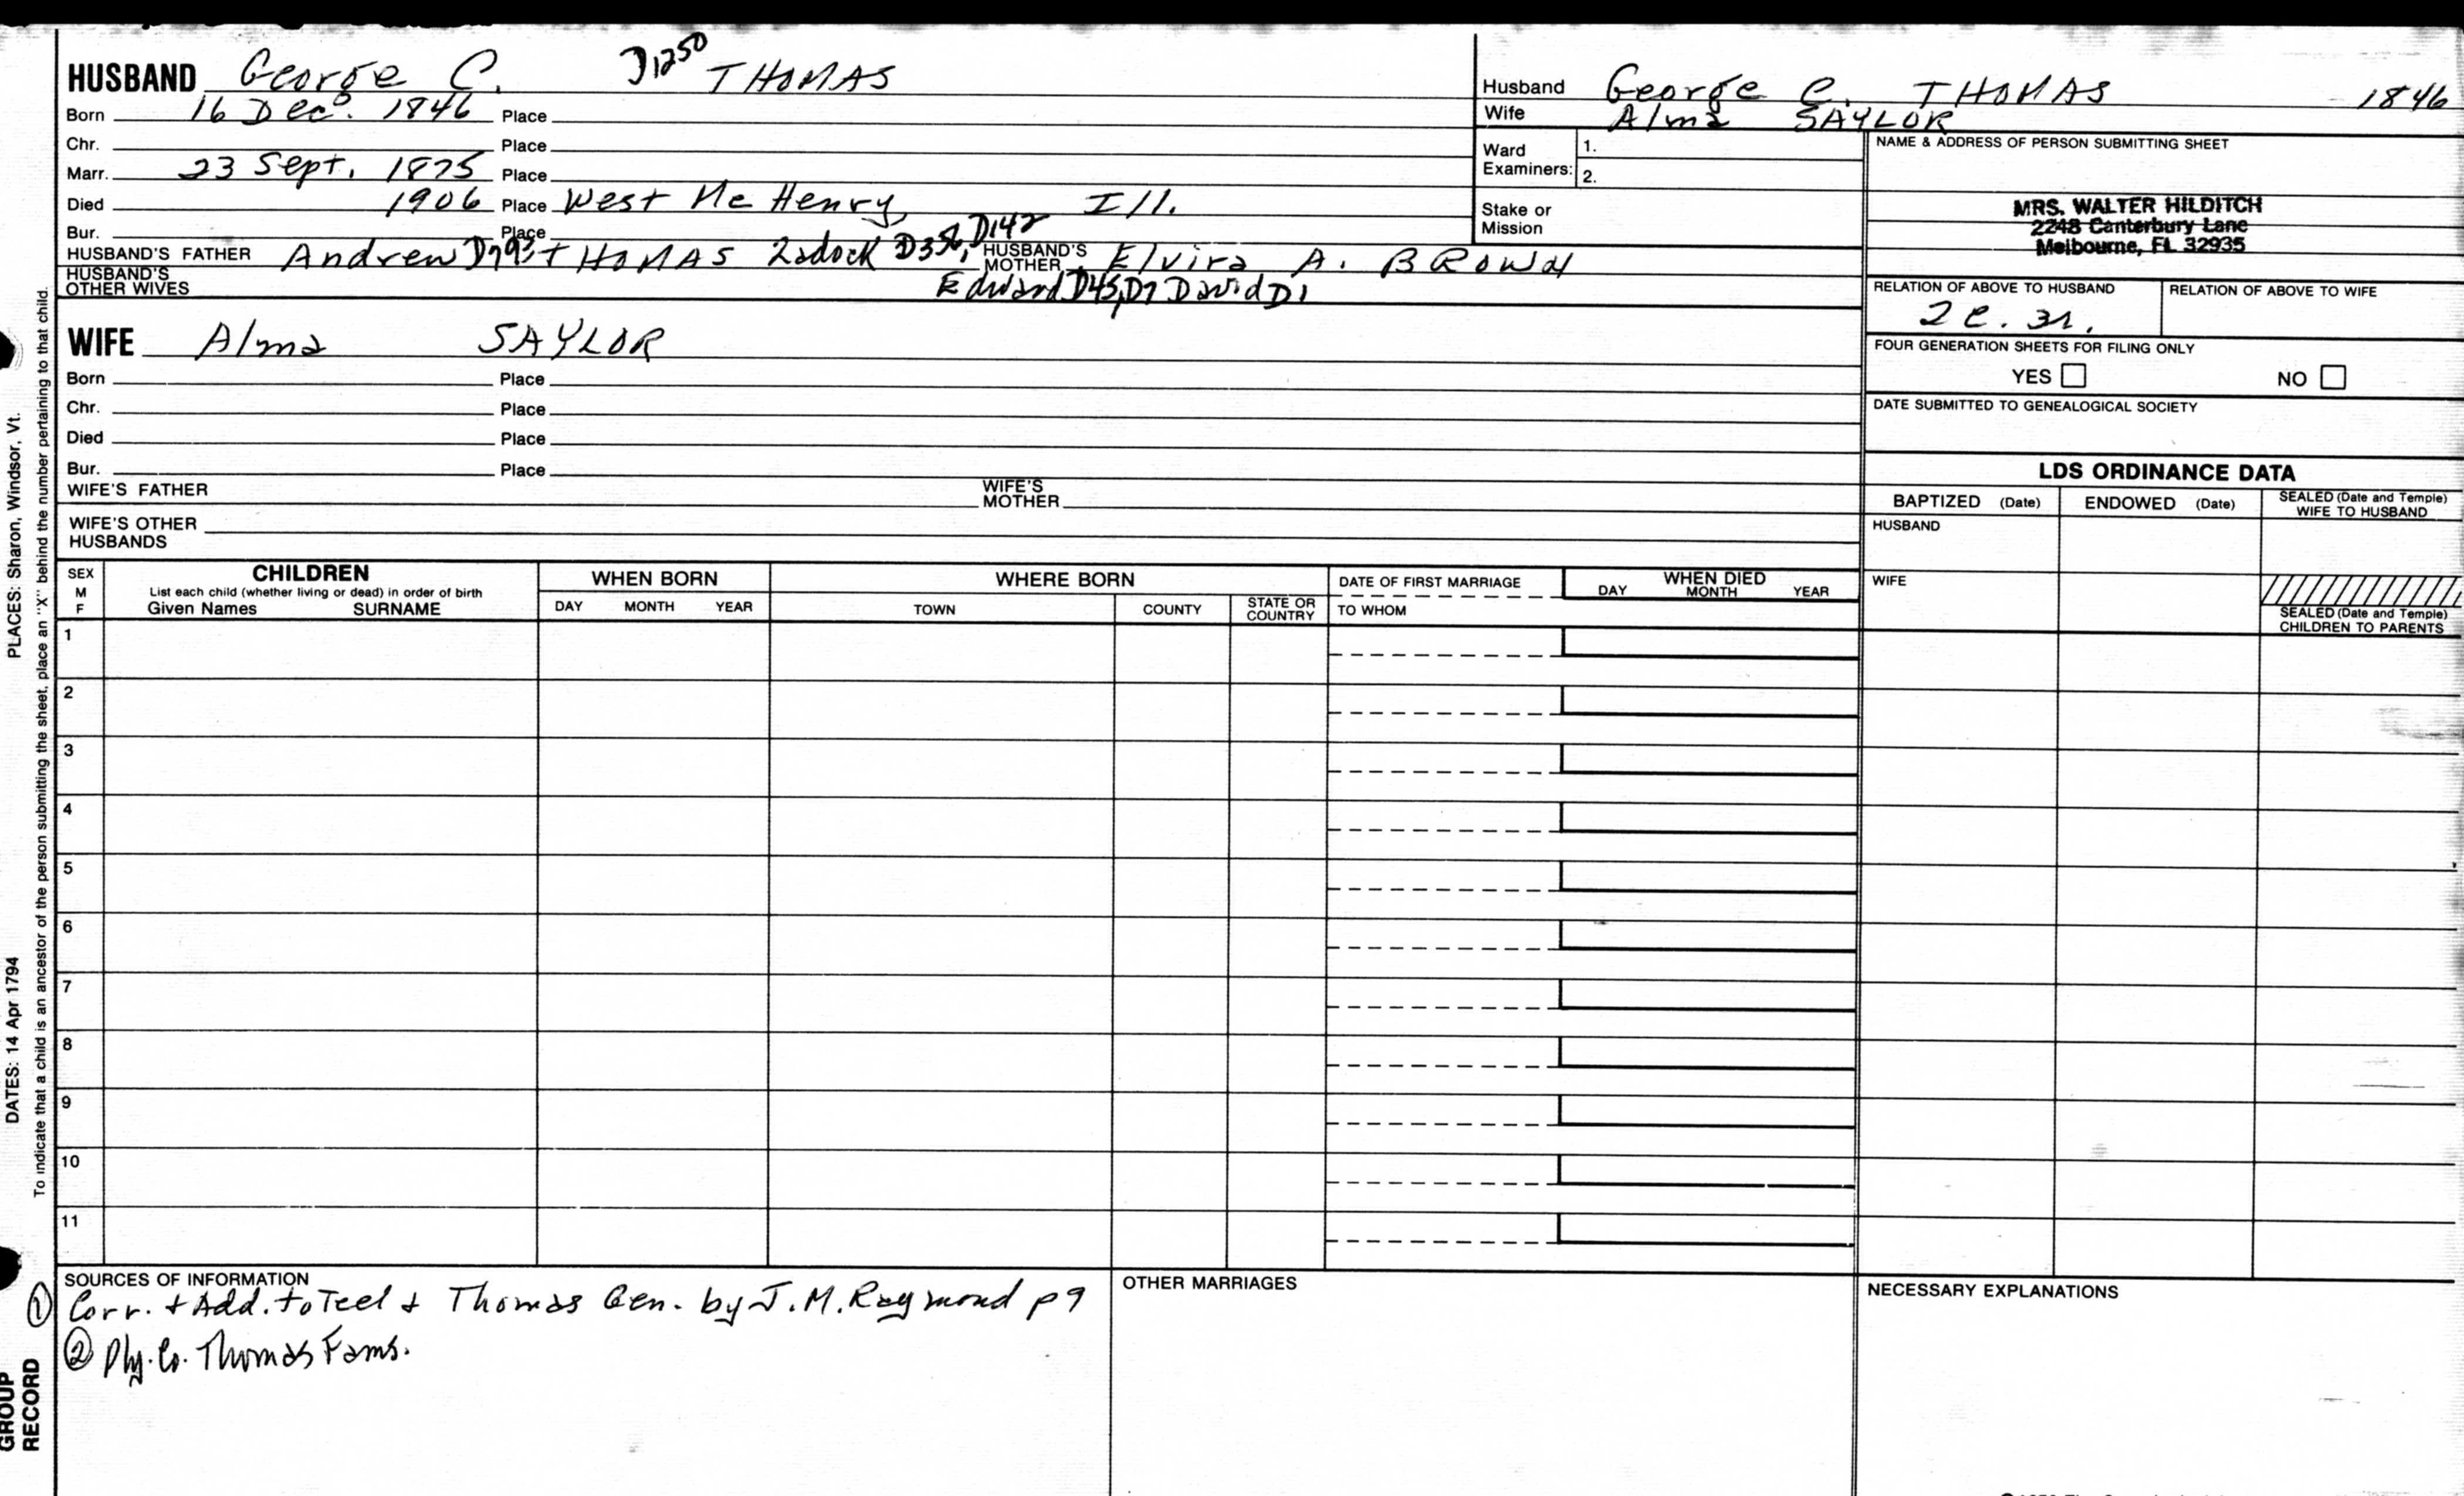 HUSBAND George C. D1250 THOMAS
Born 16 Dec. 1846 Place
Chr. Place
Marr. 23 Sept. 1875 Place
Died 1906 Place West Mc Henry, Ill.
Bur. Place
HUSBAND'S FATHER Andrew D793 THOMAS Zadock D356, D142 HUSBAND'S MOTHER Elvira A. BROWN
HUSBAND'S OTHER WIVES Edward D45, D7 David D1
WIFE Alma SAYLOR
Born Place
Chr. Place
Died Place
Bur. Place
WIFE'S FATHER WIFE'S MOTHER
WIFE'S OTHER HUSBANDS
Husband George C. THOMAS 1846
Wife Alma SAYLOR
Ward Examiners: 1.
2.
Stake or Mission
NAME & ADDRESS OF PERSON SUBMITTING SHEET
MRS. WALTER HILDITCH
2248 Canterbury Lane
Melbourne, FL 32935
RELATION OF ABOVE TO HUSBAND RELATION OF ABOVE TO WIFE
2 c. 3r.
FOUR GENERATION SHEETS FOR FILING ONLY
YES NO
DATE SUBMITTED TO GENEALOGICAL SOCIETY
LDS ORDINANCE DATA
BAPTIZED (Date) ENDOWED (Date) SEALED (Date and Temple) WIFE TO HUSBAND
HUSBAND
WIFE
SEALED (Date and Temple) CHILDREN TO PARENTS
SEX M F
CHILDREN
List each child (whether living or dead) in order of birth
Given Names SURNAME
WHEN BORN
DAY MONTH YEAR
WHERE BORN
TOWN COUNTY STATE OR COUNTRY
DATE OF FIRST MARRIAGE
TO WHOM
WHEN DIED
DAY MONTH YEAR
1
2
3
4
5
6
7
8
9
10
11
SOURCES OF INFORMATION
① Corr. + Add. to Teel + Thomas Gen. by J. M. Raymond p 9
② Ply. Co. Thomas Fams.
OTHER MARRIAGES
NECESSARY EXPLANATIONS
PLACES: Sharon, Windsor, Vt.
DATES: 14 Apr 1794
To indicate that a child is an ancestor of the person submitting the sheet, place an "X" behind the number pertaining to that child.
GROUP
RECORD